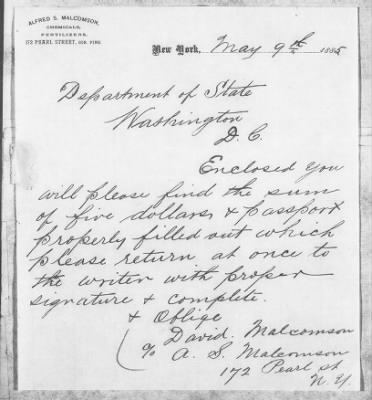 ALFRED S. MALCOMSON,
CHEMICALS,
FERTILIZERS,
172 PEARL STREET, COR. PINE
New York, May 9th 1885
Department of State
Washington
D. C.
Enclosed you
will please find the sum
of five dollars & passport
properly filled out which
please return at once to
the writer with proper
signature & complete.
& Oblige
David. Malcomson
c/o A. S. Malcomson
172 Pearl st
N. Y.